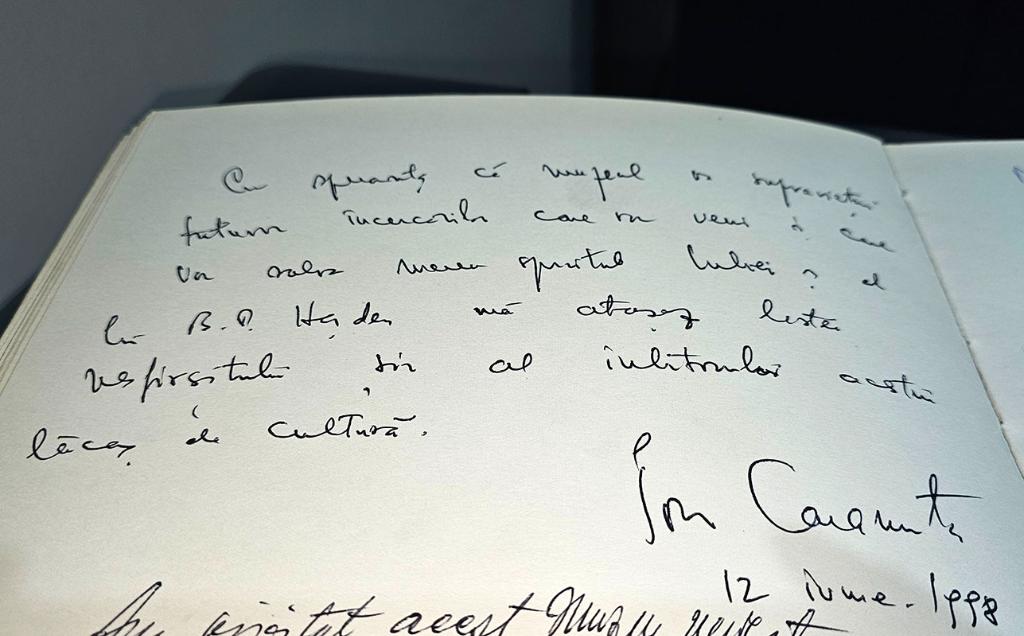 Cu speranța că muzeul va supraviețui
tuturor încercărilor care vor veni și care
va salva mereu spiritul Iuliei și al
lui B.P. Hașdeu mă atașez listei
nesfîrșitului șir al iubitorilor acestui
lăcaș de cultură.
Ion Caramit
12 iunie. 1998
Am vizitat acest Muzeu